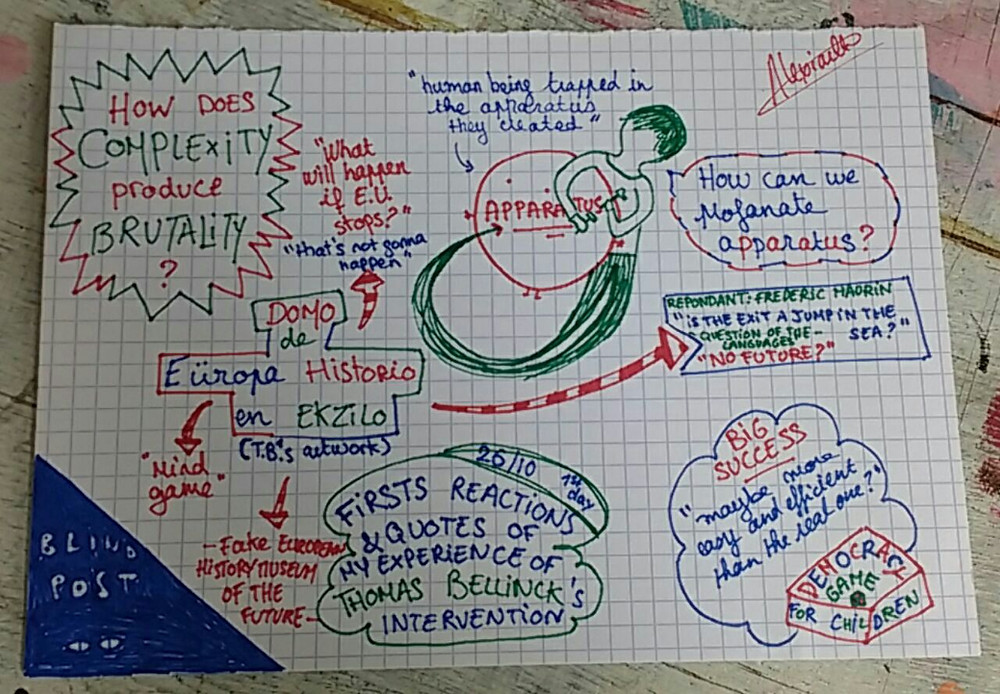 HOW DOES
COMPLEXITY
produce
BRUTALITY
?
"human being trapped in
the apparatus
they created"
"What
will happen
if E.U.
stops?"
"that's not gonna
happen"
APPARATUS
How can we
Mofanate
apparatus?
DOMO
de
Eüropa Historio
en EKZILO
(T.B.'s artwork)
REPONDANT: FREDERIC MAURIN
"IS THE EXIT A JUMP IN THE
SEA?"
QUESTION OF THE
LANGUAGES
"NO FUTURE?"
"Mind
game"
- Fake EUROPEAN
HISTORY MUSEUM
OF THE
FUTURE -
26/10
1st day
FIRSTS REACTIONS
& QUOTES OF
MY EXPERIENCE OF
THOMAS BELLINCK's
INTERVENTION
BIG
SUCCESS
"maybe more
easy and efficient
than the real one?"
DEMOCRACY
GAME
FOR CHILDREN
BLIND
POST